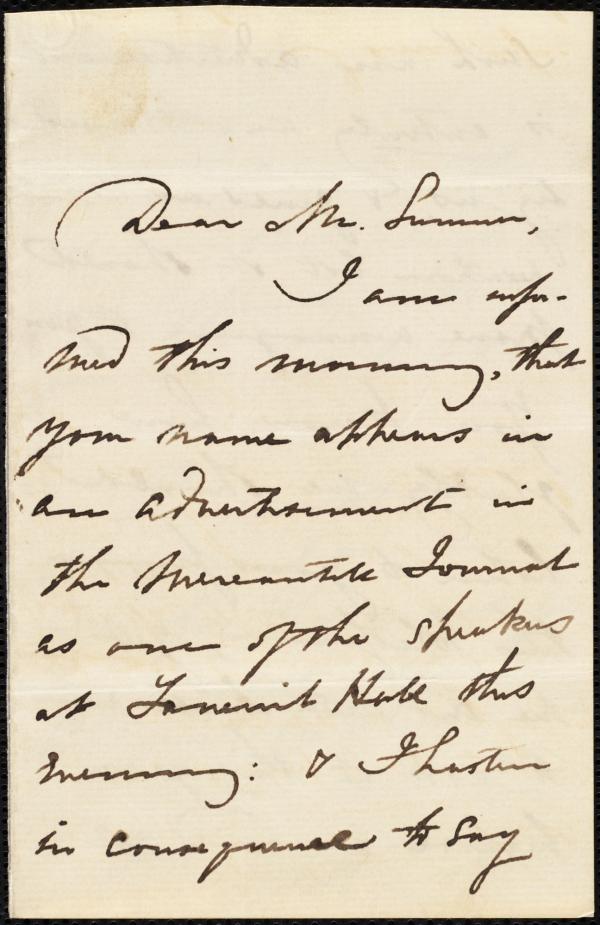 Dear Mr. Sumner,
I am infor-
med this morning, that
your name appears in
an advertisement in
the Mercantile Journal
as one of the speakers
at Faneuil Hall this
evening: & I hasten
in consequence to say